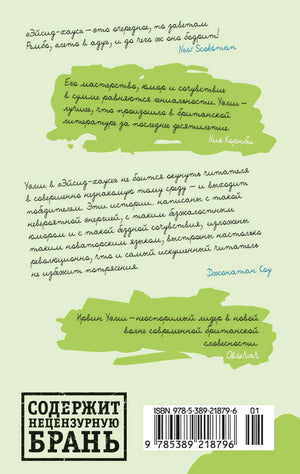 «Эйсид-хаус» — это очередное, по заветам
Рембо, «лето в аду», и до чего ж оно бодрит!
New Scotsman
Его мастерство, юмор и сочувствие
в сумме равняются гениальности. Уэлш —
лучшее, что произошло в британской
литературе за последние десятилетия.
Ник Хорнби
Уэлш в «Эйсид-хаусе» не боится окунуть читателя
в совершенно незнакомую тому среду — и выходит
победителем. Эти истории написаны с такой
невероятной энергией, с таким безжалостным
юмором и с такой бездной сочувствия, изложены
таким новаторским языком, выстроены настолько
революционно, что и самый искушенный читатель
не избежит потрясения.
Джонатан Коу
Ирвин Уэлш — неоспоримый лидер в новой
волне современной британской
словесности.
Observer
СОДЕРЖИТ
НЕЦЕНЗУРНУЮ
БРАНЬ
ISBN 978-5-389-21879-6
01
9 785389 218796